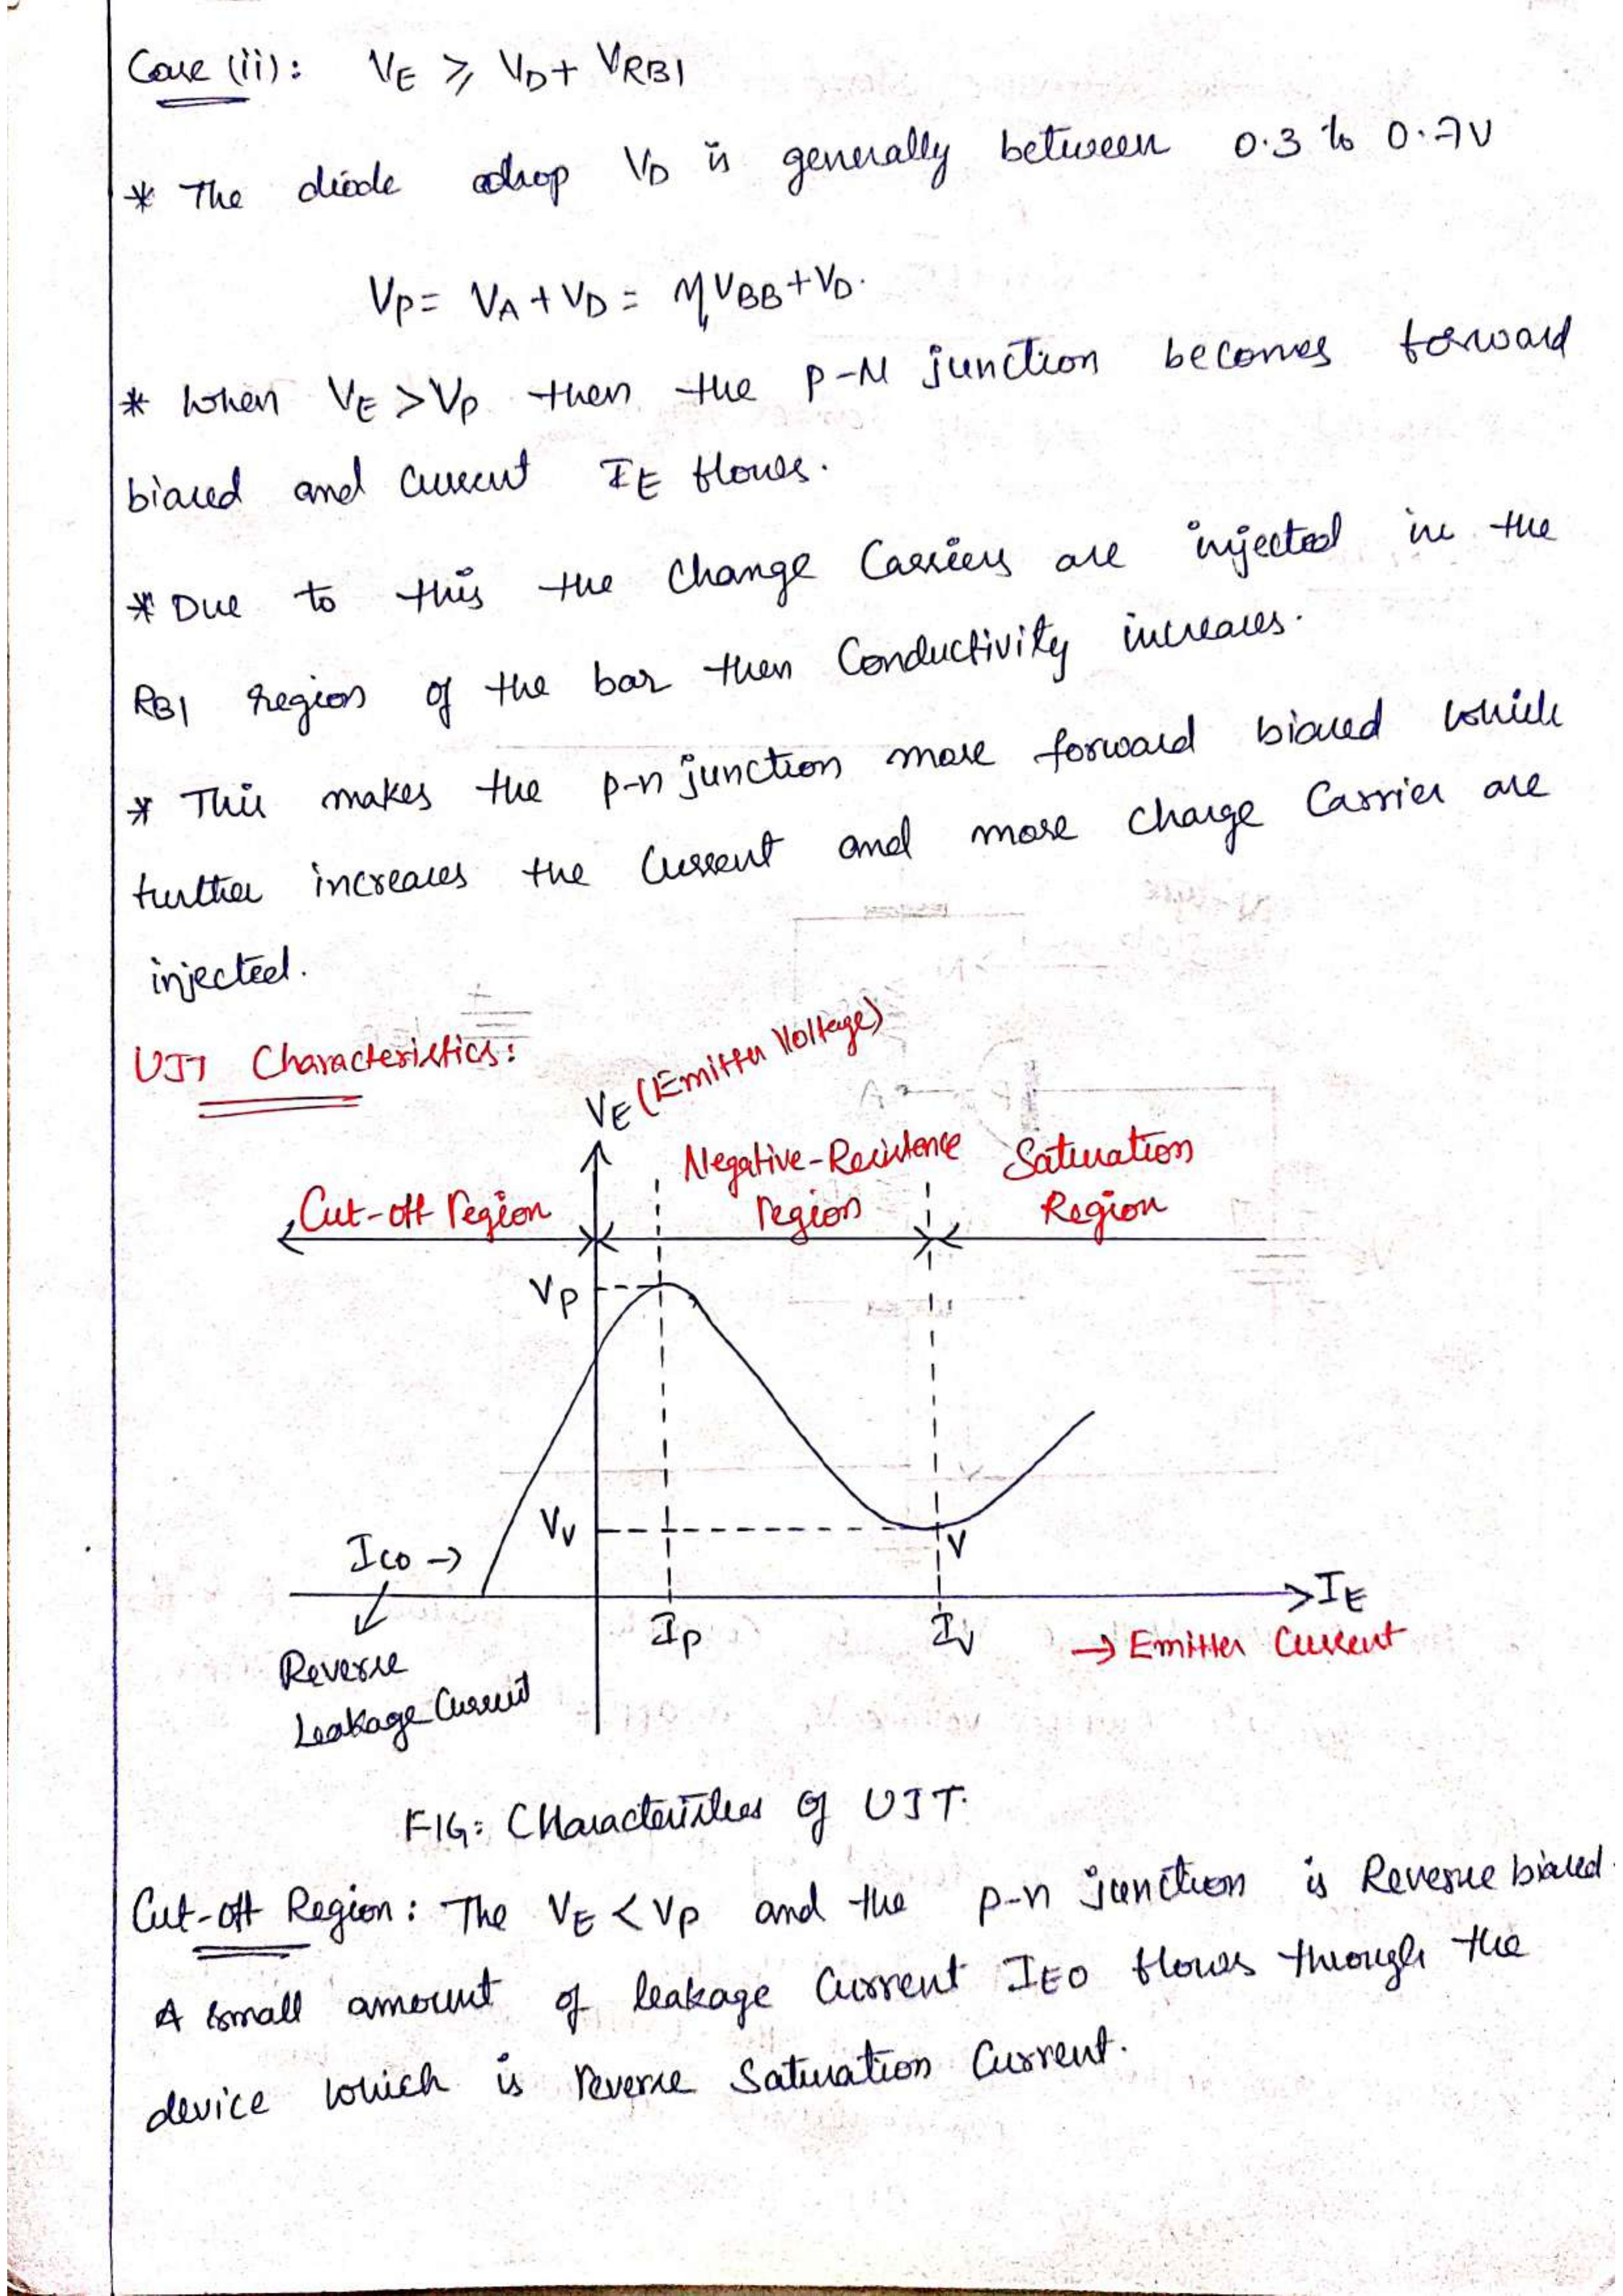 Case (ii): VE ≥ VD + VRB1
* The diode drop VD is generally between 0.3 to 0.7V
VP = VA + VD = ηVBB + VD.
* When VE > VP then the P-N junction becomes forward
biased and current IE flows.
* Due to this the change carriers are injected in the
RB1 region of the bar then Conductivity increases.
* This makes the p-n junction more forward biased which
further increases the current and more charge carrier are
injected.
UJT Characteristics:
VE (Emitter Voltage)
Cut-off region
Negative-Resistence
region
Saturation
Region
VP
VV
V
ICO →
IP
IV
IE
→ Emitter Current
Reverse
Leakage Current
FIG: Characteristics of UJT.
Cut-off Region: The VE < VP and the p-n junction is Reverse biased.
A small amount of leakage current IEO flows through the
device which is reverse saturation current.